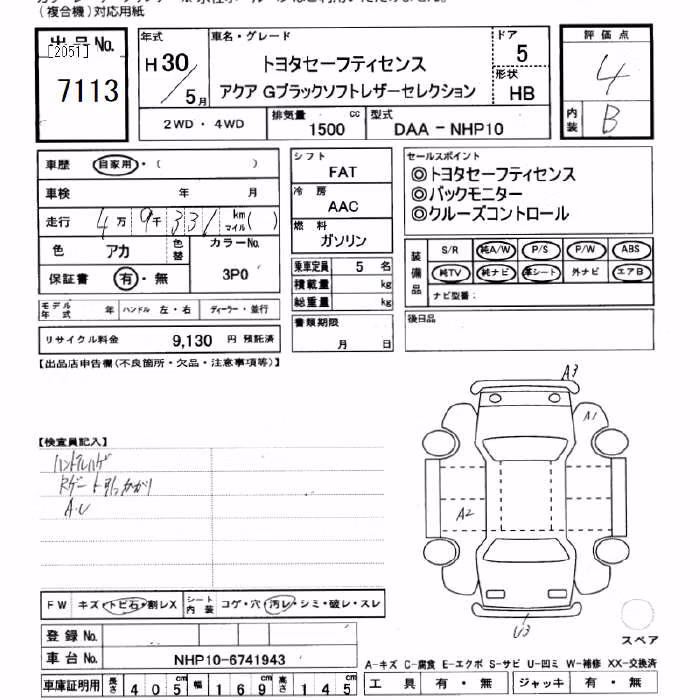 (複合機)対応用紙
出品No.
[2051]
7113
年式
H30/5月
車名・グレード
トヨタセーフティセンス
アクア Gブラックソフトレザーセレクション
ドア
5
形状
HB
評価点
4
内装
B
2WD・4WD
排気量
1500 cc
型式
DAA-NHP10
車歴 自家用・( )
車検 年 月
走行 4万9千331 km マイル( )
色 アカ 色替
カラーNo.
3P0
保証書 有・無
シフト
FAT
冷房
AAC
燃料
ガソリン
乗車定員 5 名
積載量 kg
総重量 kg
書類期限
月 日
セールスポイント
◎トヨタセーフティセンス
◎バックモニター
◎クルーズコントロール
装備品
S/R 純A/W P/S P/W ABS
純TV 純ナビ 革シート 外ナビ エアB
ナビ型番:
後日品
モデル年式 年 ハンドル 左・右 ディーラー・並行
リサイクル料金 9,130 円 預託済
【出品店申告欄(不良箇所・欠品・注意事項等)】
【検査員記入】
ハンドルハゲ
Rゲート引っかかり
A.U
A3
A1
A2
U3
スペア
FW キズ・トビ石・割レX
シート内装 コゲ・穴・汚レ・シミ・破レ・スレ
登録No.
車台No. NHP10-6741943
車庫証明用 長さ 405cm 幅 169cm 高さ 145cm
A-キズ C-腐食 E-エクボ S-サビ U-凹ミ W-補修 XX-交換済
工具 有・無 ジャッキ 有・無